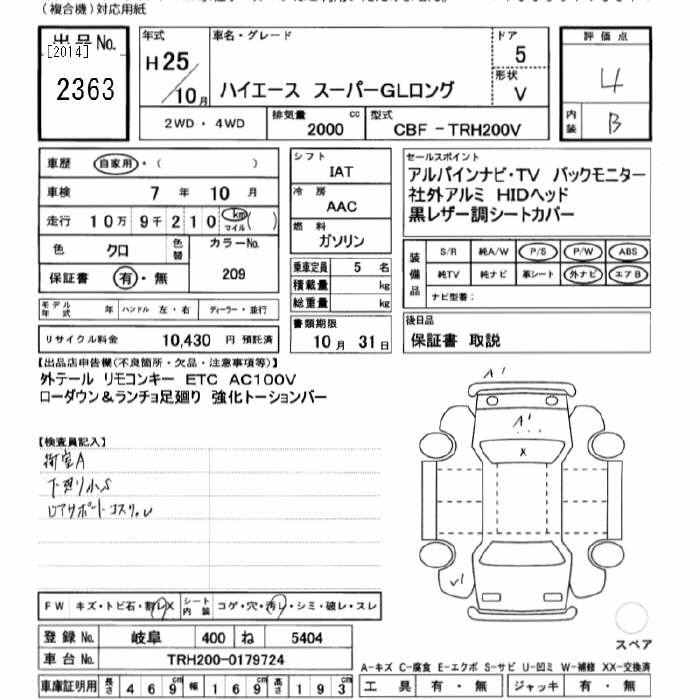 (複合機)対応用紙
出品No.
[2014]
2363
年式
H25/10月
車名・グレード
ハイエース スーパーGLロング
ドア
5
形状
V
評価点
4
内装
B
2WD・4WD
排気量
2000 cc
型式
CBF-TRH200V
車歴 自家用・( )
車検 7年 10月
走行 10万 9千 210 km マイル ( )
色 クロ 色替 カラーNo.
保証書 有・無 209
モデル年式 年 ハンドル 左・右 ディーラー・並行
リサイクル料金 10,430 円 預託済
シフト
IAT
冷房
AAC
燃料
ガソリン
乗車定員 5 名
積載量 kg
総重量 kg
書類期限
10月 31日
セールスポイント
アルパインナビ・TV バックモニター
社外アルミ HIDヘッド
黒レザー調シートカバー
装備品
S/R 純A/W P/S P/W ABS
純TV 純ナビ 革シート 外ナビ エアB
ナビ型番:
後日品
保証書 取説
【出品店申告欄(不良箇所・欠品・注意事項等)】
外テール リモコンキー ETC AC100V
ローダウン&ランチョ足廻り 強化トーションバー
【検査員記入】
荷室A
下廻り小S
ロアサポートコスリ
A'
A'
X
FW キズ・トビ石・割レX シート内装 コゲ・穴・汚レ・シミ・破レ・スレ
登録No. 岐阜 400 ね 5404
車台No. TRH200-0179724
車庫証明用 長さ 469 幅 169 高さ 193
スペア
A-キズ C-腐食 E-エクボ S-サビ U-凹ミ W-補修 XX-交換済
工具 有・無 ジャッキ 有・無